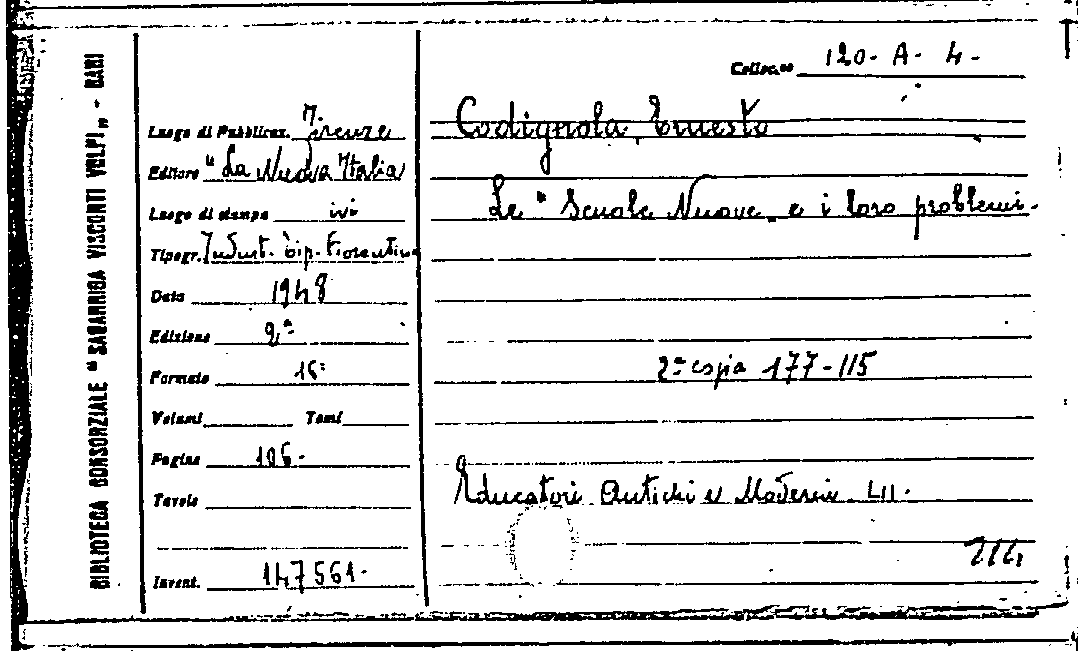 BIBLIOTECA CONSORZIALE "SAGARRIGA VISCONTI VOLPI„ - BARI
Colloc.ne 120- A- 4-
Luogo di Pubblicaz. Firenze
Editore "La Nuova Italia
Luogo di stampa ivi
Tipogr. Indust. Tip. Fiorentina
Data 1948
Edizione 2ª
Formato 16°
Volumi Tomi
Pagine 106-
Tavole
Invent. 147561-
Codignola, Ernesto
Le "Scuole Nuove„ e i loro problemi.
2ª copia 177-115
Educatori Antichi e Moderni LII.
214